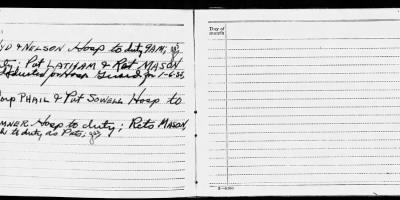 YD & NELSON Hosp to duty 9AM;
ty; Pvt LATHAM & Ret MASON
for Hosp Guard for 1-6-35
oup PHAIL & Pvt SOWELL Hosp to
MNER Hosp to duty; Rcts MASON,
to duty as Pvts;
Day of
month